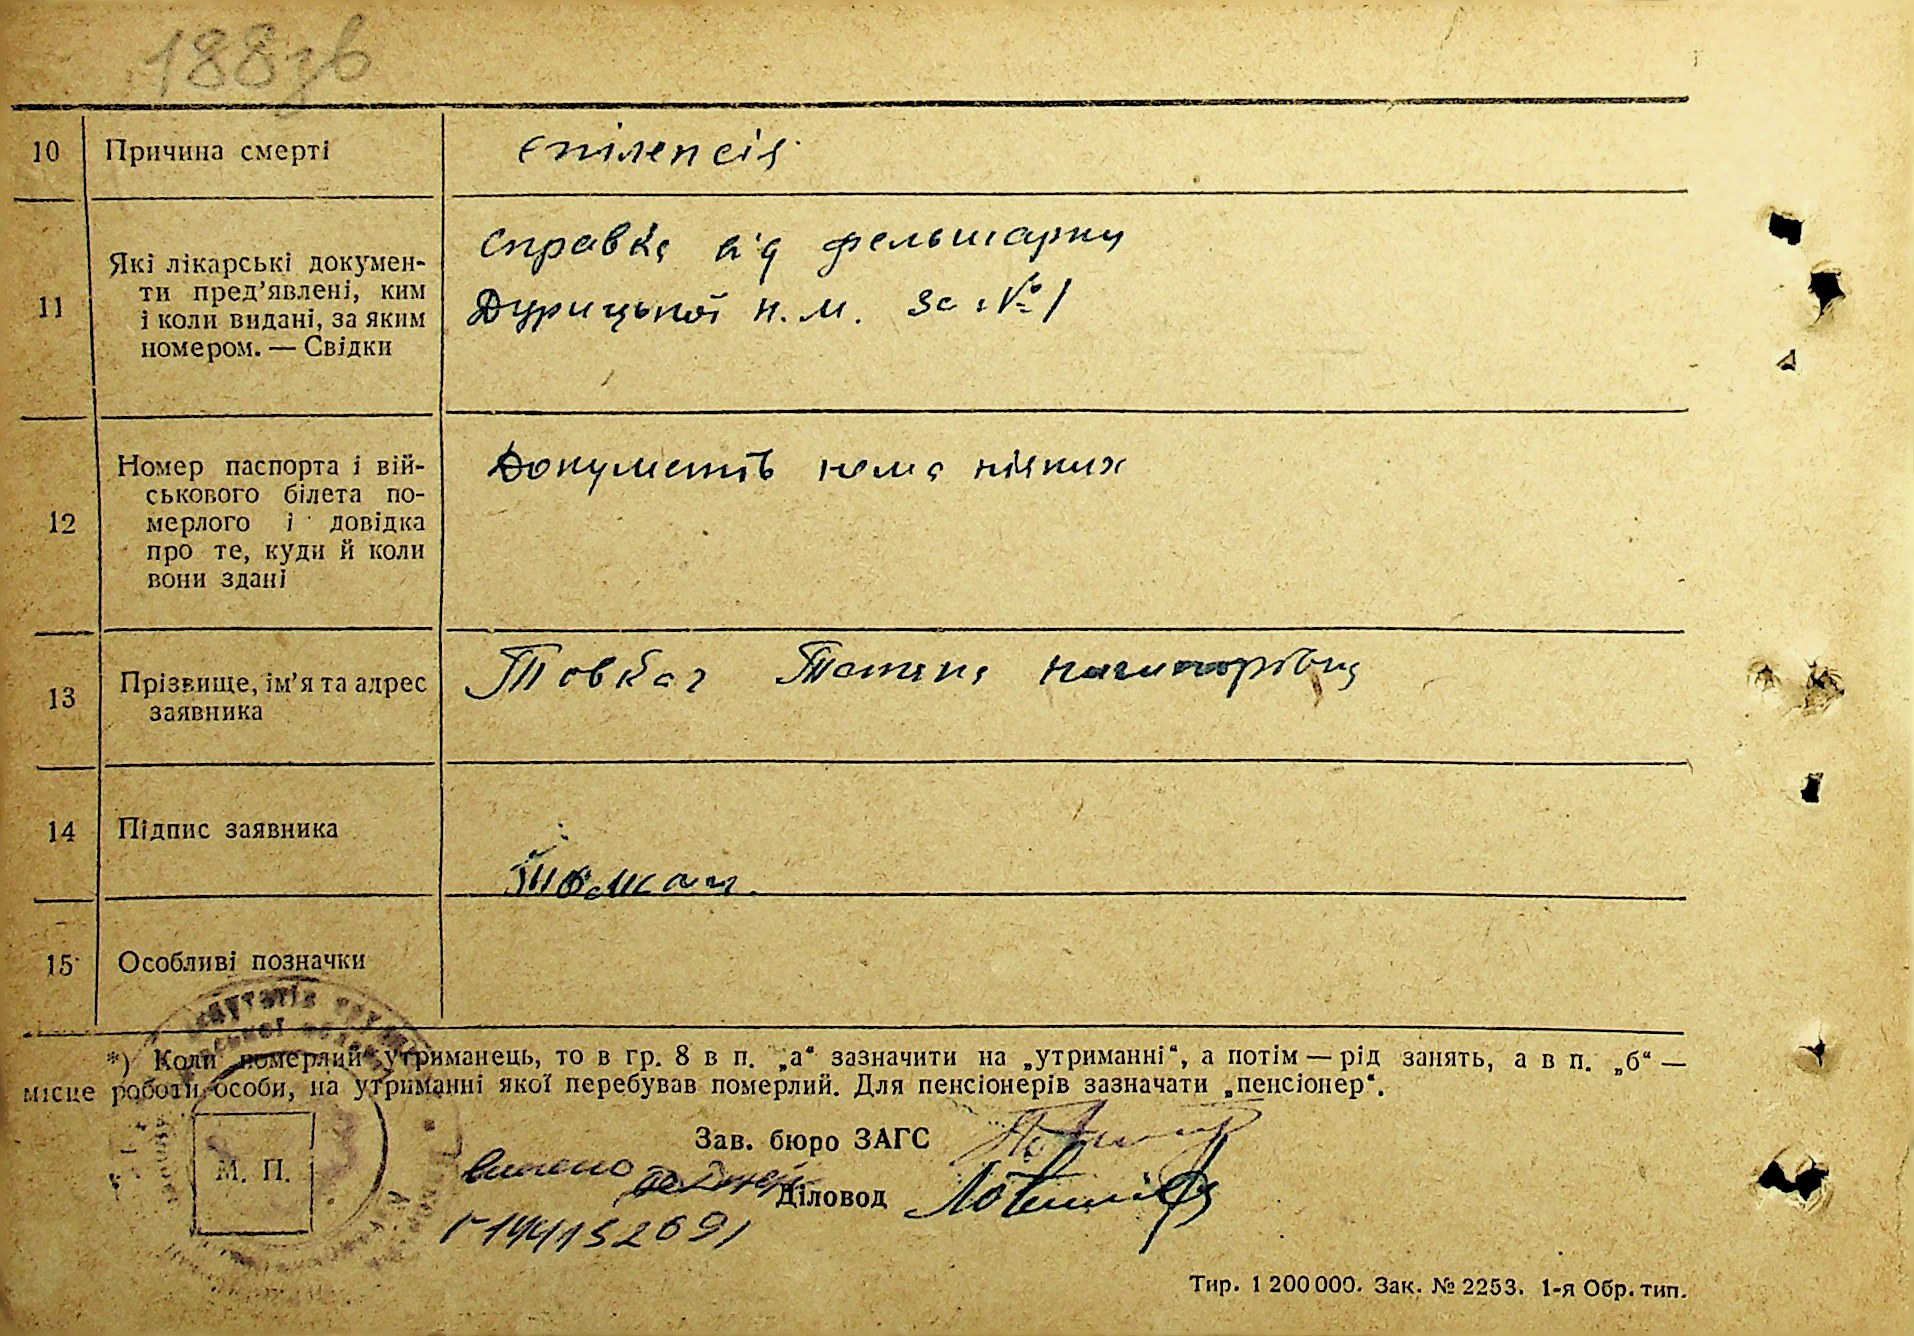 188зв
10 Причина смерті Епілепсія
11 Які лікарські докумен-
ти пред'явлені, ким
і коли видані, за яким
номером. — Свідки
Справка від фельшарки
Дурицької Н. М. За №1
12 Номер паспорта і вій-
ськового білета по-
мерлого і довідка
про те, куди й коли
вони здані
Документів нема ніяких
13 Прізвище, ім'я та адрес
заявника
Товкач Тетяна Ничипорівна
14 Підпис заявника
15 Особливі позначки
*) Коли померлий утриманець, то в гр. 8 в п. „а“ зазначити на „утриманні“, а потім — рід занять, а в п. „б“ —
місце роботи особи, на утриманні якої перебував померлий. Для пенсіонерів зазначати „пенсіонер“.
Зав. бюро ЗАГС
Діловод
М. П.
Тир. 1 200 000. Зак. № 2253. 1-я Обр. тип.